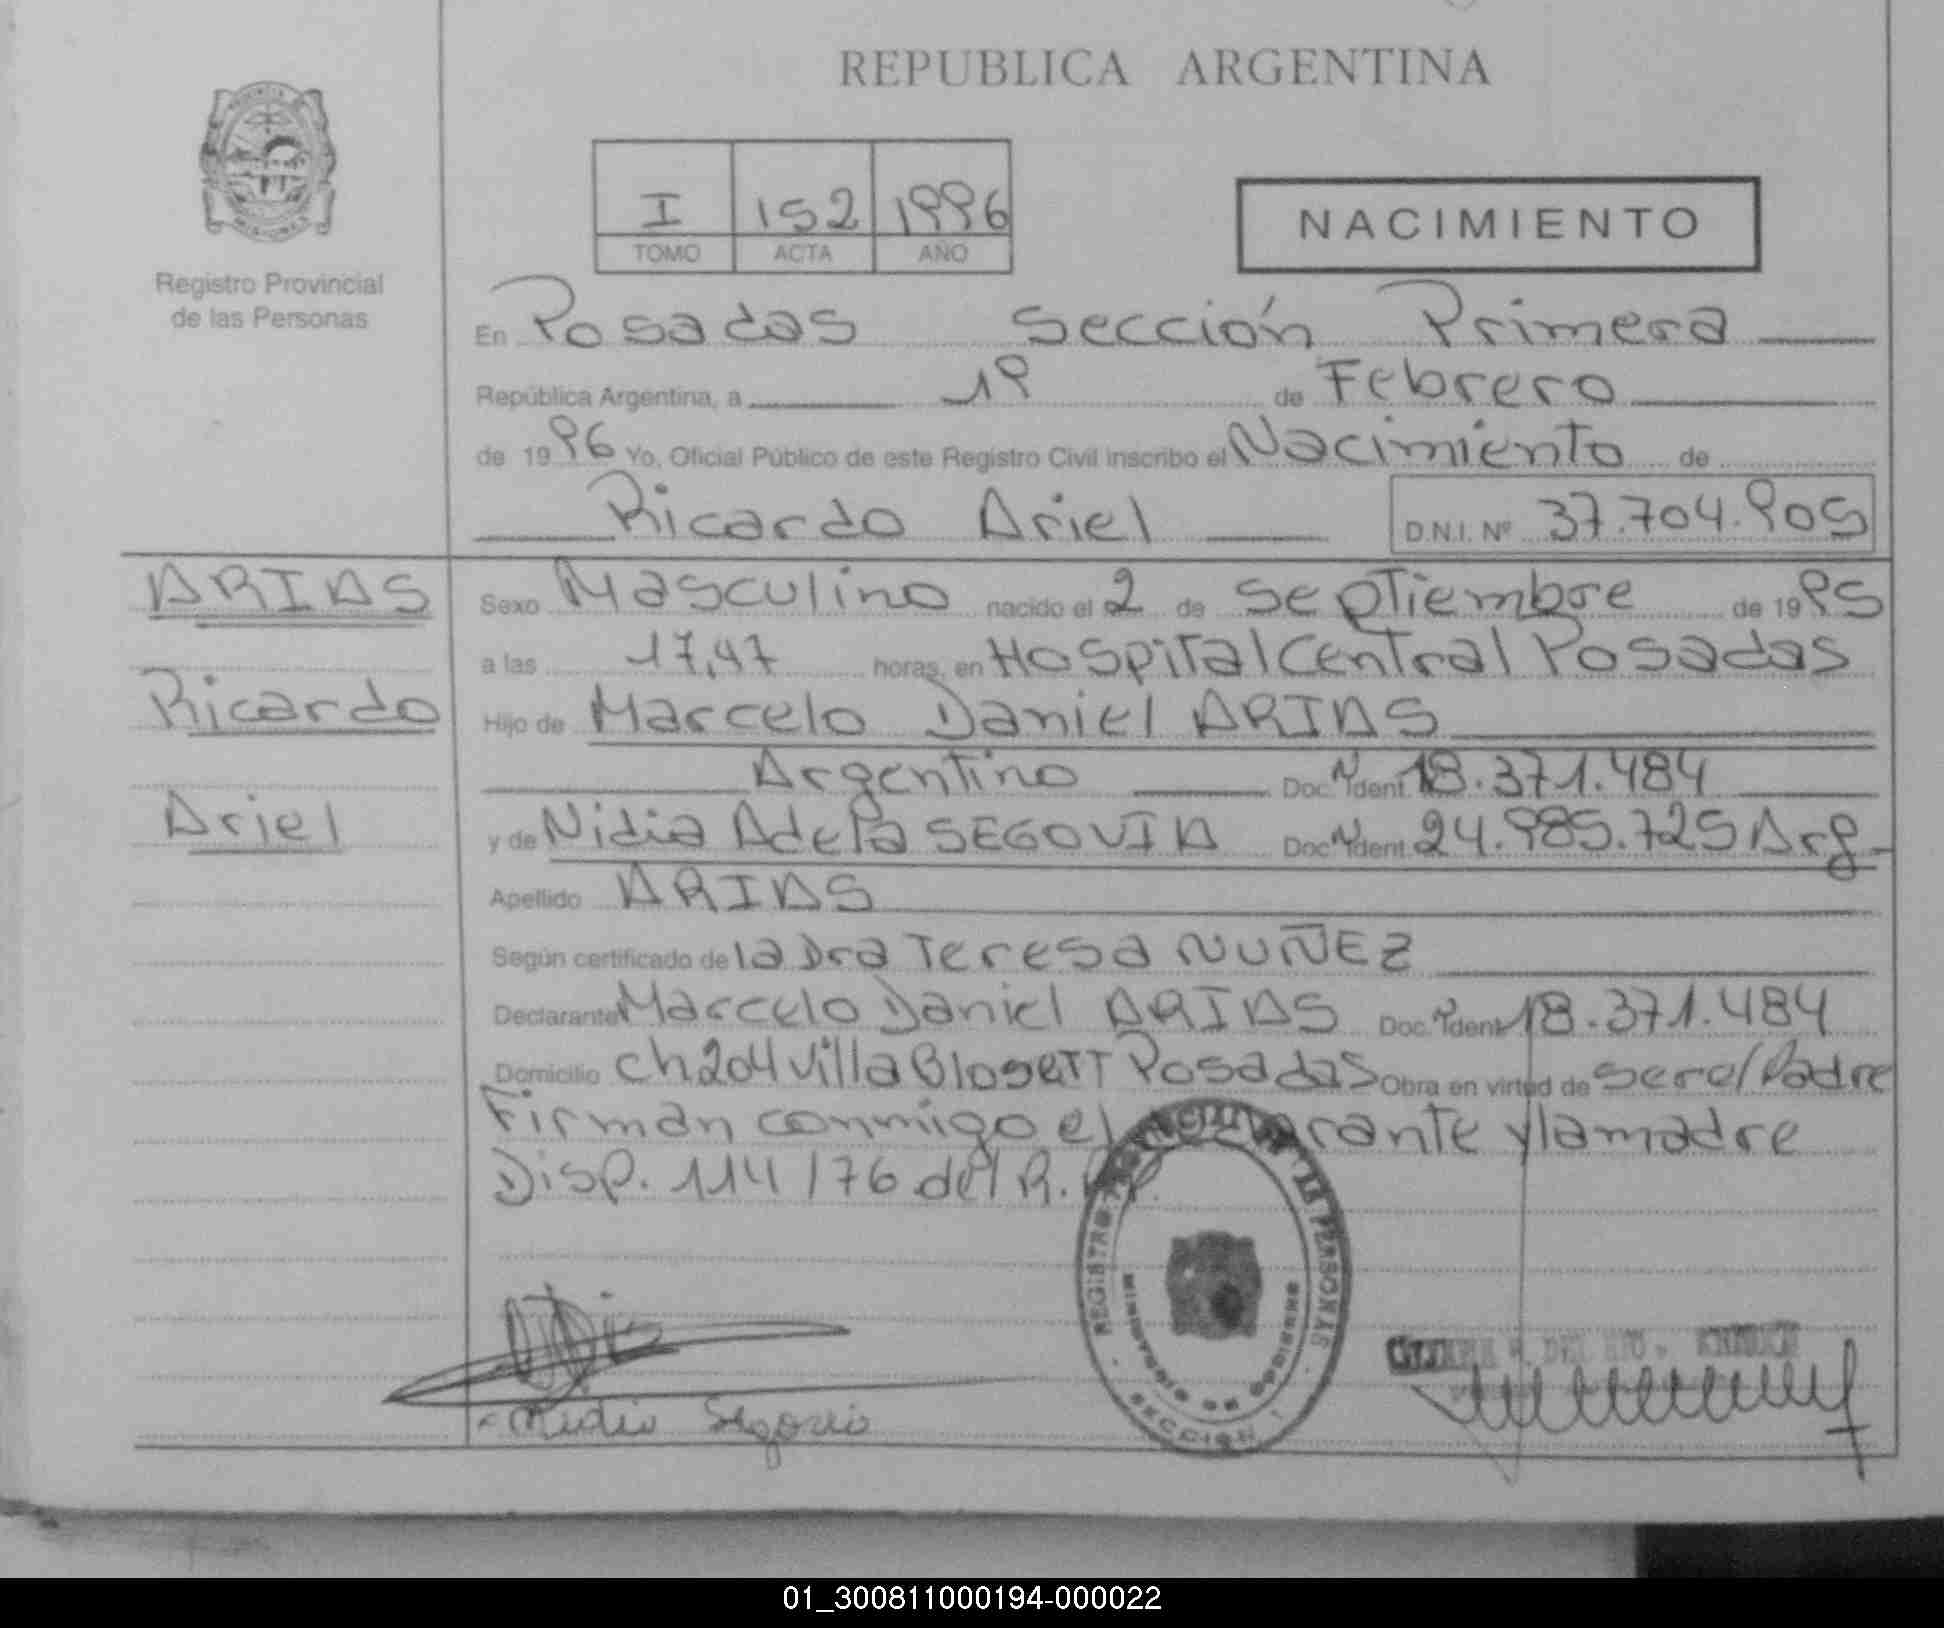 REPUBLICA ARGENTINA
PROVINCIA DE
MISIONES
Registro Provincial
de las Personas
I 152 1996
TOMO ACTA AÑO
NACIMIENTO
En Posadas Sección Primera
República Argentina, a 1º de Febrero
de 1996 Yo, Oficial Público de este Registro Civil inscribo el Nacimiento de
Ricardo Ariel D.N.I. Nº 37.704.905
ARIAS
Ricardo
Ariel
Sexo Masculino nacido el 2 de Septiembre de 1995
a las 17,47 horas, en Hospital Central Posadas
Hijo de Marcelo Daniel ARIAS
Argentino Doc. Ident. 18.371.484
y de Nidia Adela SEGOVIA Doc. Ident. 24.985.725 Arg.
Apellido ARIAS
Según certificado de la Dra Teresa NUÑEZ
Declarante Marcelo Daniel ARIAS Doc. Ident. 18.371.484
Domicilio ch 204 Villa Blosett Posadas Obra en virtud de ser el Padre
Firman conmigo el declarante y la madre
Disp. 114/76 del R.P.P.
REGISTRO DE LAS PERSONAS
MINISTERIO DE GOBIERNO
SECCION 1
Nidia Segovia
DEL RIO
01_300811000194-000022